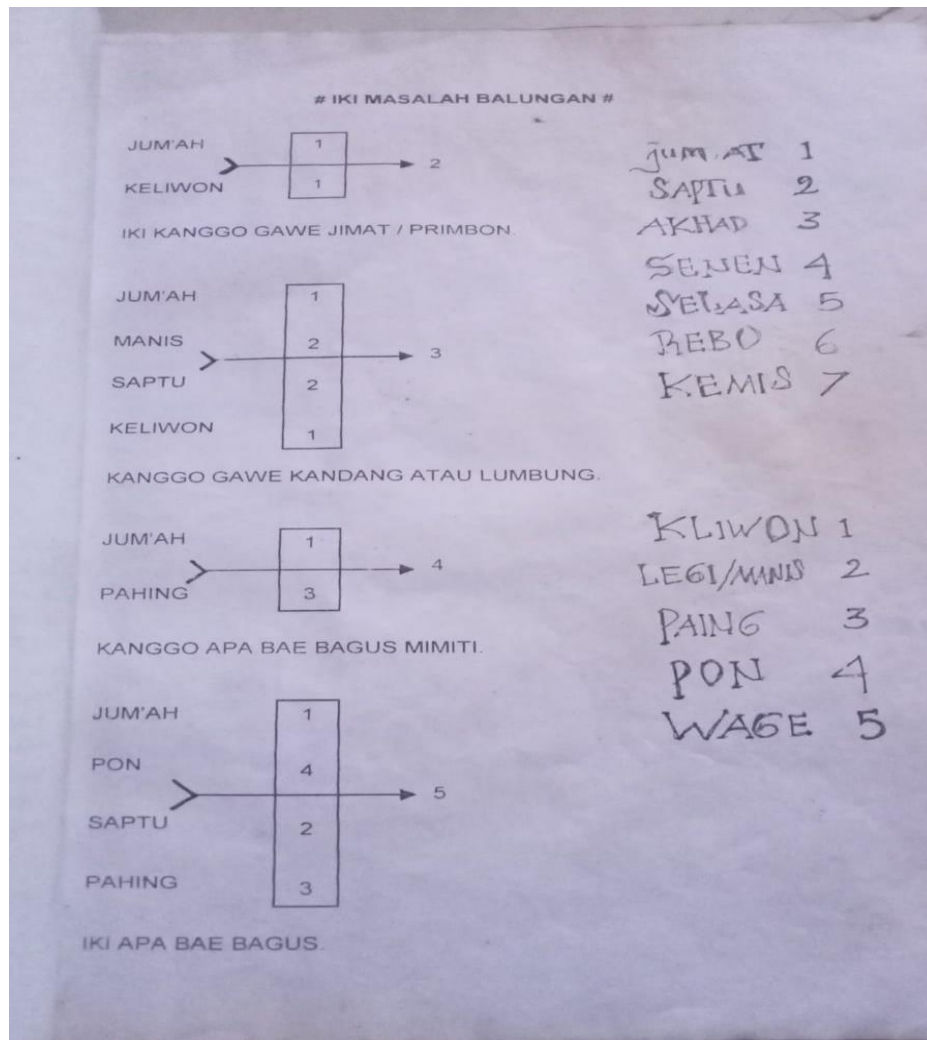 # IKI MASALAH BALUNGAN #
JUM'AH 1
2
KELIWON 1
IKI KANGGO GAWE JIMAT / PRIMBON.
JUM'AH 1
MANIS 2
3
SAPTU 2
KELIWON 1
KANGGO GAWE KANDANG ATAU LUMBUNG.
JUM'AH 1
4
PAHING 3
KANGGO APA BAE BAGUS MIMITI.
JUM'AH 1
PON 4
5
SAPTU 2
PAHING 3
IKI APA BAE BAGUS.
JUM.AT 1
SAPTU 2
AKHAD 3
SENEN 4
SELASA 5
REBO 6
KEMIS 7
KLIWON 1
LEGI/MANIS 2
PAING 3
PON 4
WAGE 5